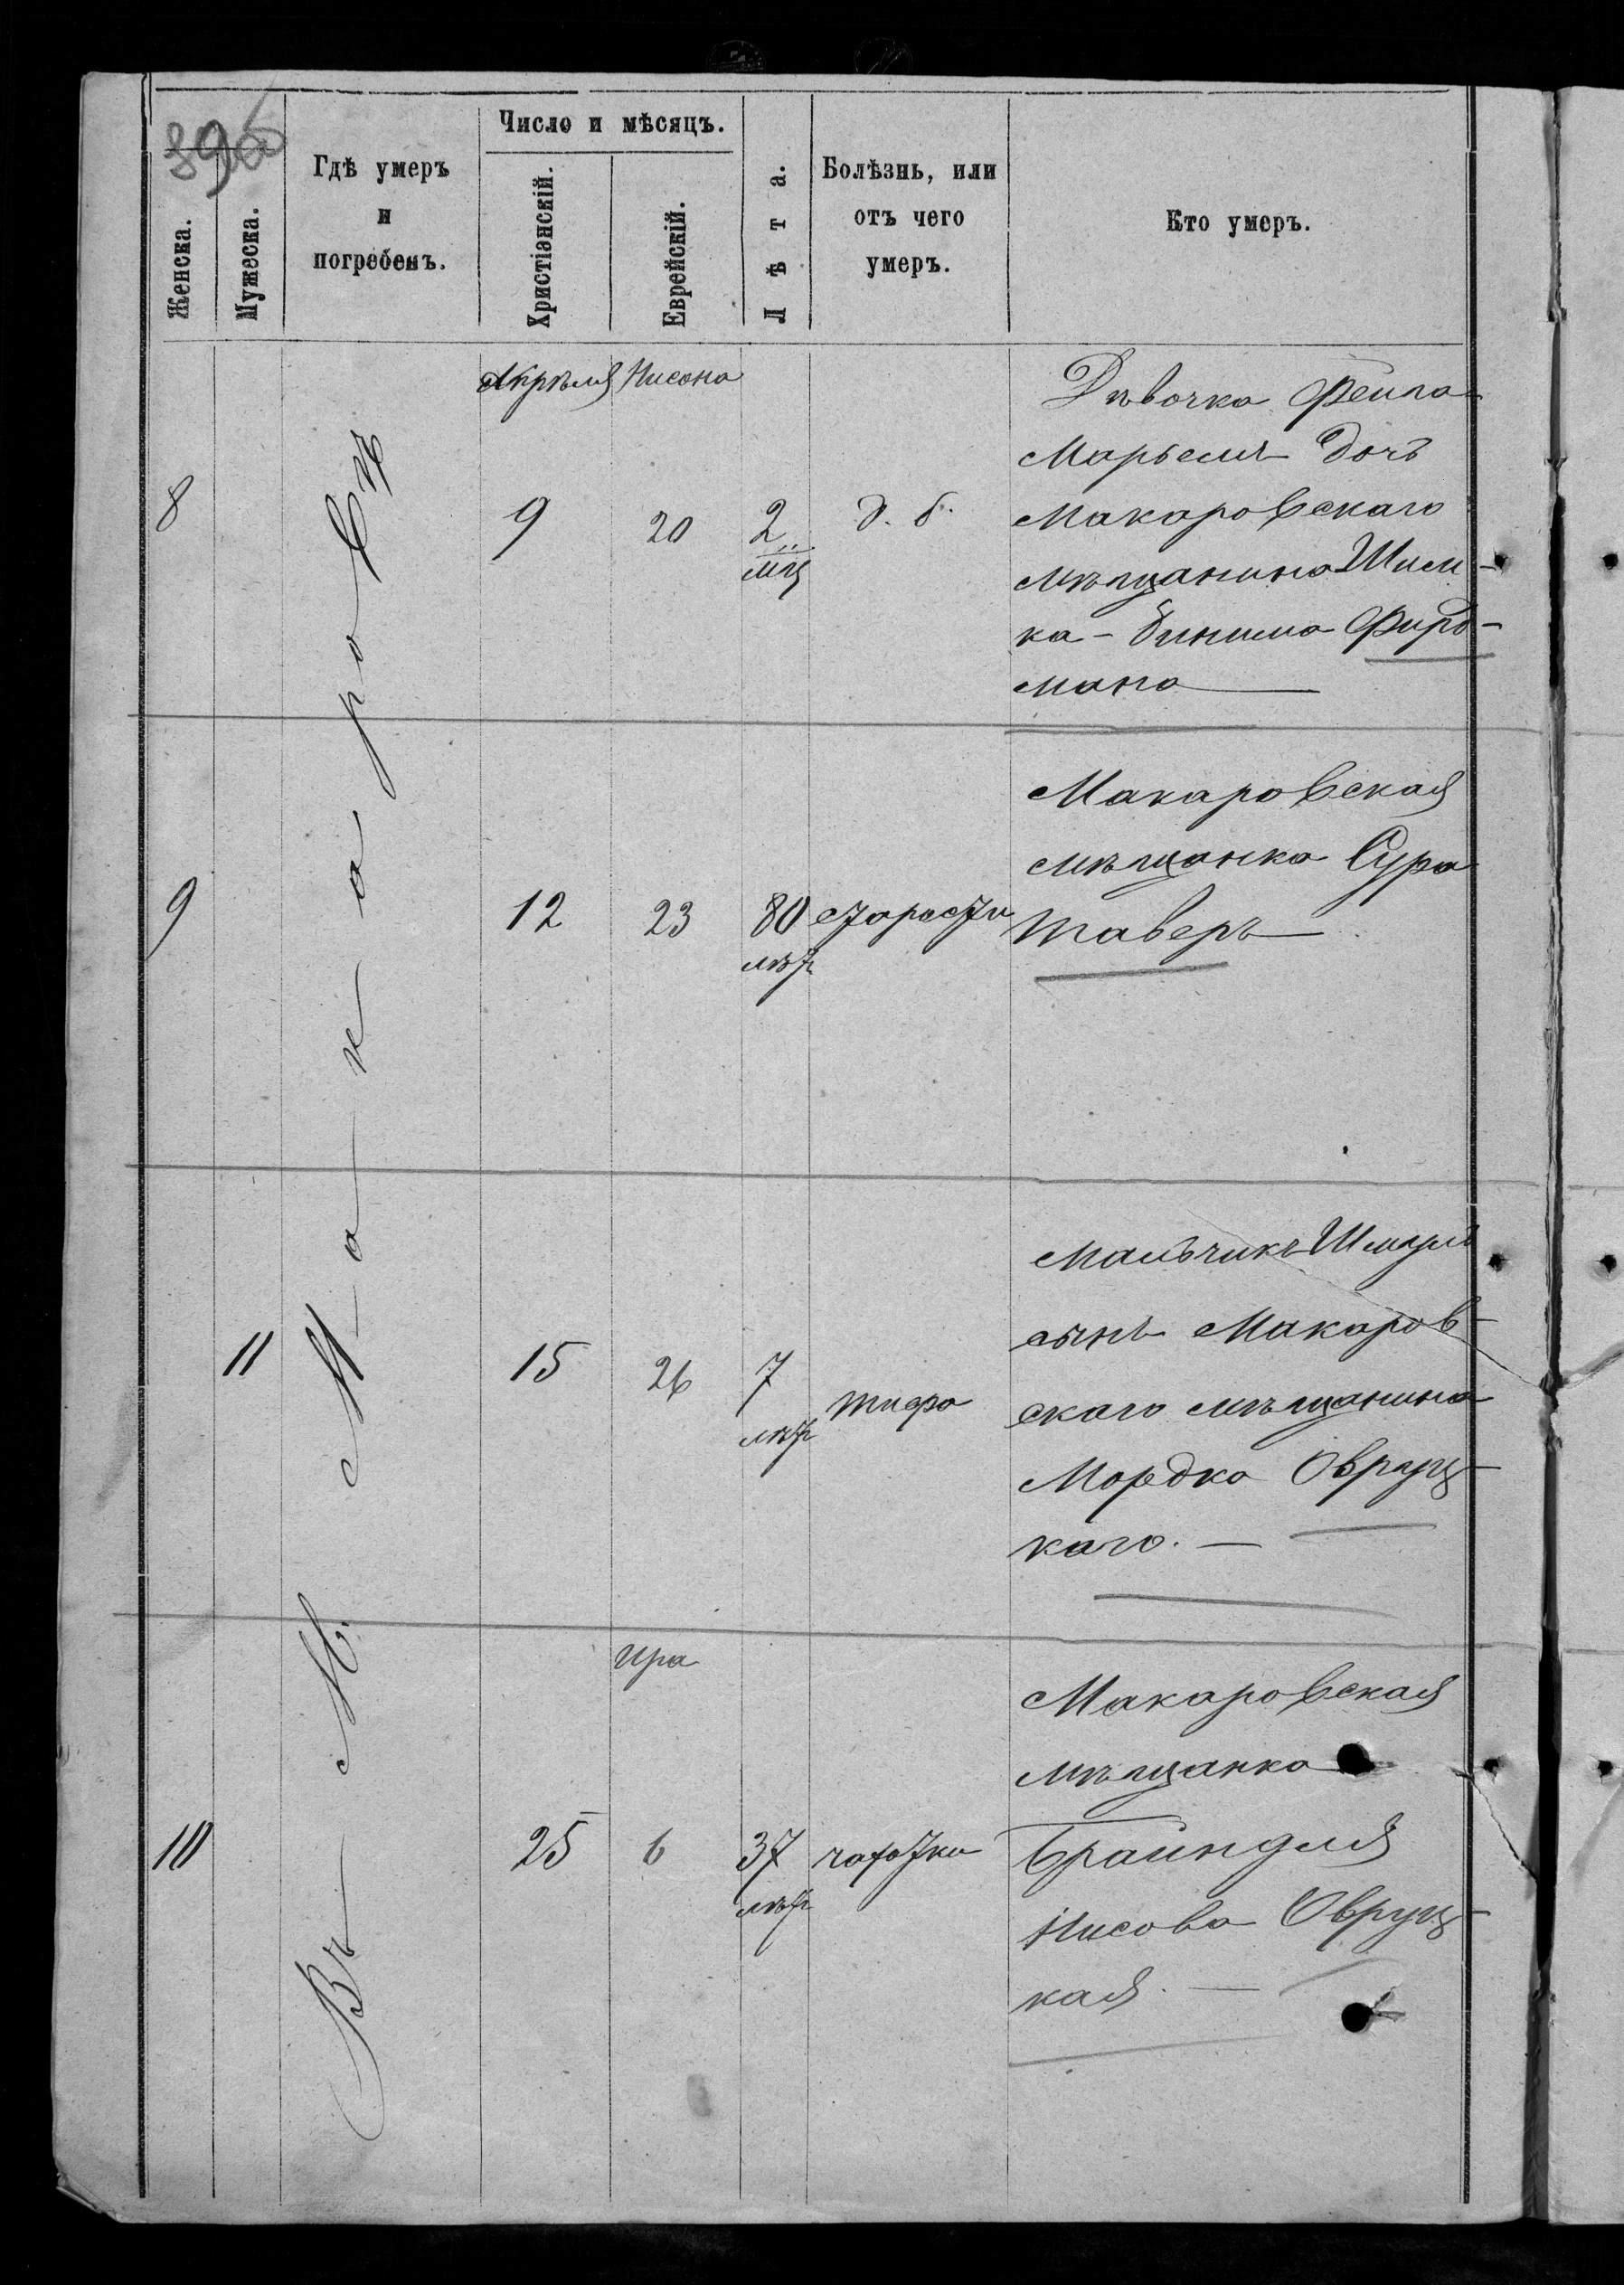 396
Женска.
Мужеска.
Гдѣ умеръ
и
погребенъ.
Число и мѣсяцъ.
Христіанскій.
Еврейскій.
Лѣта.
Болѣзнь, или
отъ чего
умеръ.
Кто умеръ.
Въ М. Макаровѣ
Апрѣля Нисона
8 9 20 2 мц д. б.
Дѣвочка Фейга
Марьемъ дочь
Макаровскаго
мѣщанина Шим-
ка-Бинима Фирд-
мана
9 12 23 80 лѣт старости
Макаровская
мѣщанка Сура
Таверъ
11 15 26 7 лѣт тифа
Мальчикъ Шмуль
сынъ Макаров-
скаго мѣщанина
Мордко Овруц-
каго.
Ира
10 25 6 37 лѣт чахотки
Макаровская
мѣщанка
Брайндля
Нисова Овруц-
кая.